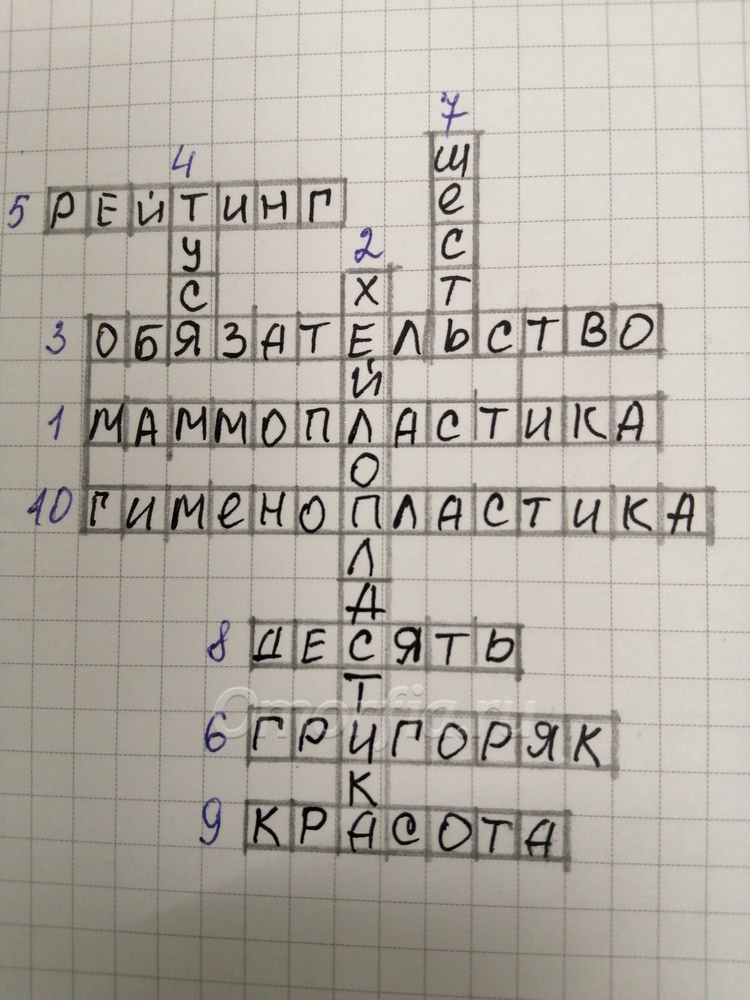 7 ШеСТЬ
4 ТУСЯ
5 РЕЙТИНГ
2 ХЕЙЛОПЛАСТИКА
3 ОБЯЗАТЕЛЬСТВО
1 МАММОПЛАСТИКА
10 ГИМеНОПЛАСТИКА
8 ДЕСЯТЬ
Omorfia.ru
6 ГРИГОРЯК
9 КРАСОТА